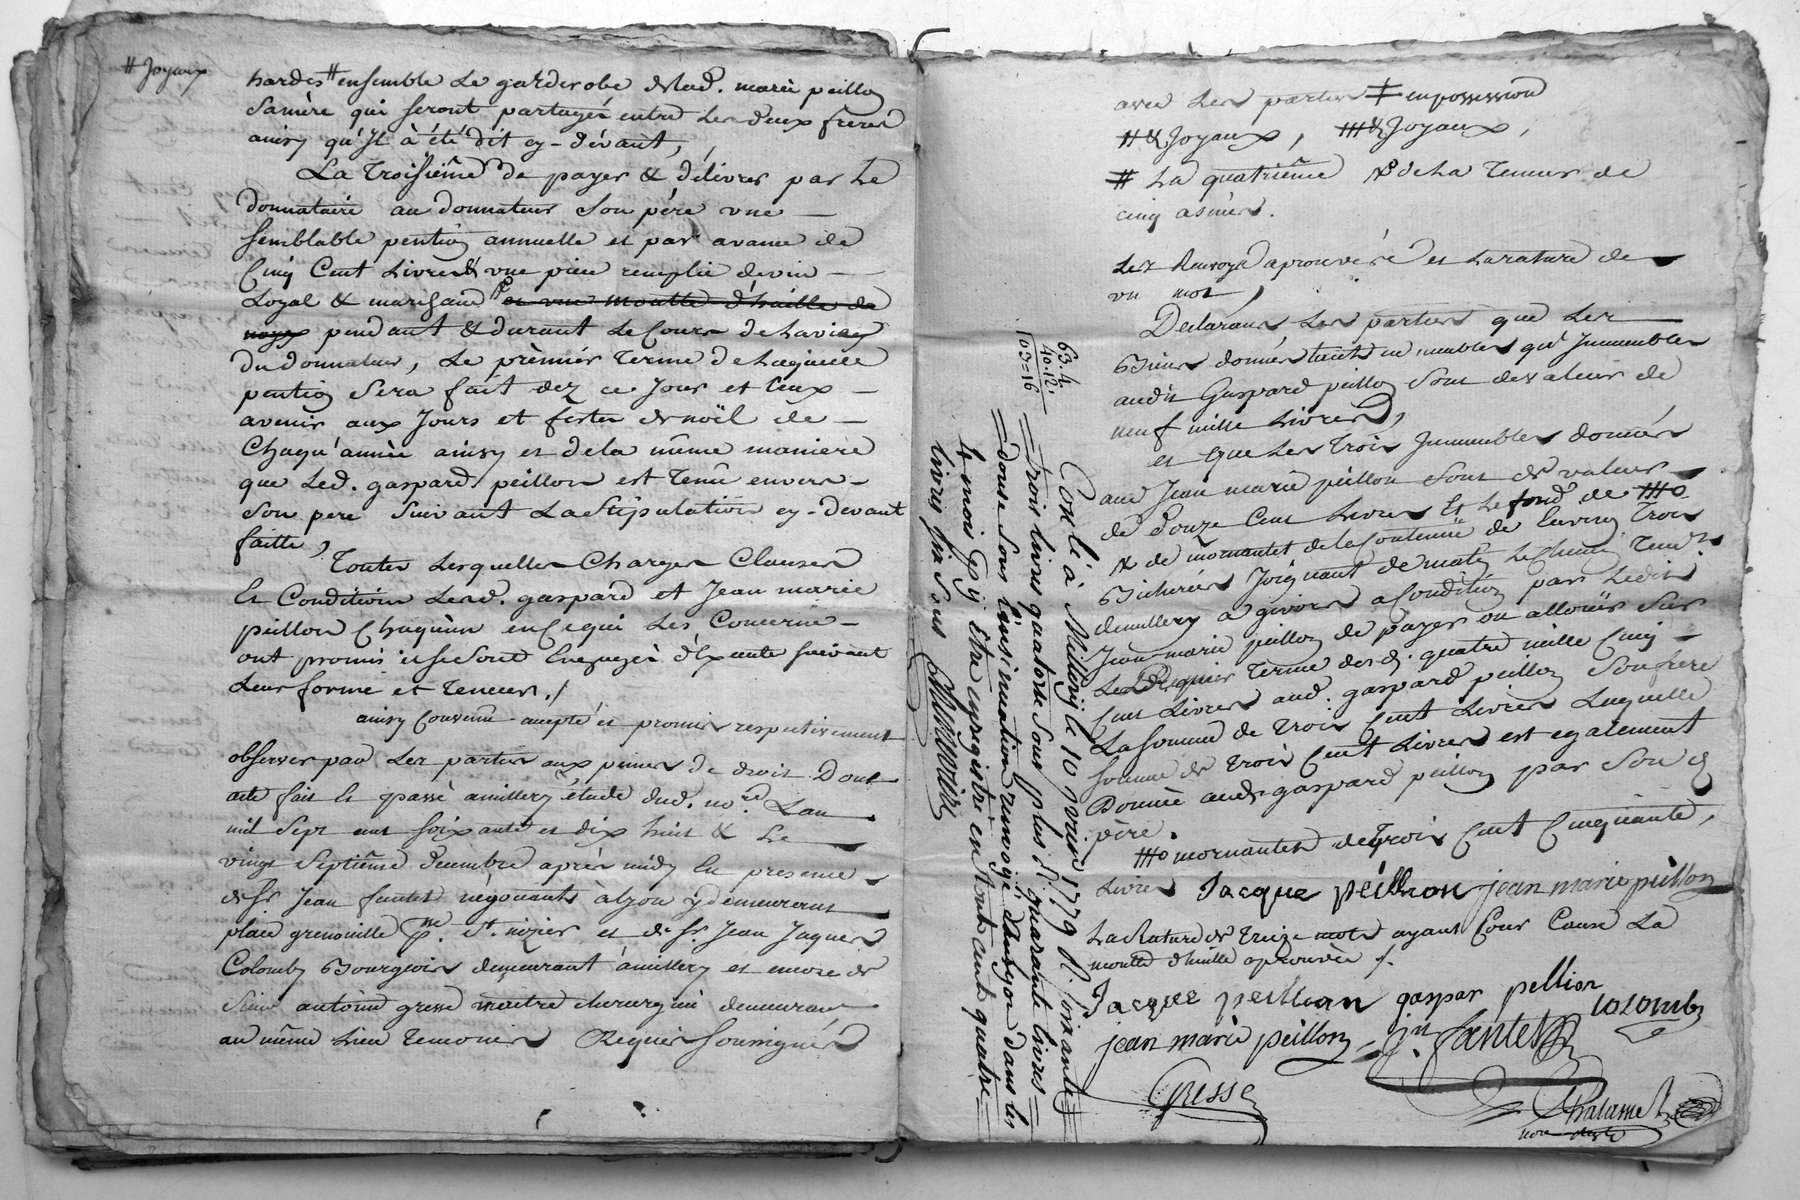 # Joyaux
hardes # ensemble Le garderobe de lad. marie peillon
Sa mère qui seront partagés entre Les deux freres
ainsy qu'Il à été dit cy-dévant,
La Troisiême de payer & délivrer par Le
donnataire au donnateur Son père une
semblable pention annuelle et par avance de
Cinq Cent Livres & une piece remplie de vin
Loyal & marchand et une moutte d'huille de
noyx pendant & durant Le Cours de La vie
du donnateur, Le prèmier terme de Laquelle
pention Sera fait dez ce Jour et Ceux
avenir aux Jours et fêtes de noël de
Chaqu'année ainsy et de la même maniere
que Led. gaspard peillon est tenû envers
Son pere Suivant La Stipulation cy-devant
faitte,
Toutes Lesquelles Charges Clauses
Et Conditions Lesd. gaspard et Jean marie
peillon Chaqu'un en Ce qui Les Concerne
ont promis et se sont Engagés d'Exécuter suivant
Leur forme et teneur. /
ainsy Convenu accepté et promis respectivement
observer par Les parties aux peines de droit Dont
acte fait et passé a millery étude dud. no.re L'an
mil sept cent soixante et dix huit & Le
vingt Septiême décembre après midy En presence
de Sr Jean fantet négociant à Lyon y demeurant
place grenouille p.sse St. nizier et de Sr. Jean Jaques
Colomby Bourgeois demeurant à millery et encore de
Sieur antoine gresse maître chirurgien demeurant
au même Lieu temoins Requis soussignés
avec Les parties ‡ en possession
# & Joyaux, ## & Joyaux,
# La quatriême & de La teneur de
cinq asnées.
Les Renvoys aprouvés et La rature de
un mot /
Declarant Les parties que Les
Biens donnés tant en meubles qu'Immeubles
audit Gaspard peillon Sont de valeur de
neuf mille Livres,
et que Les trois Immeubles donnés
aud Jean marie peillon Sont de valeur
de Douze Cent Livres Et Le fond de
de mornantet de la Contenue de Environ trois
Bicherées Joignant de matin Le Chemin tend.t
de millery a givors a Condition par Ledit
Jean marie peillon de payer ou allouër Sur
Le Dernier terme des d. quatre mille Cinq
Cent Livres aud. gaspard peillon Son frere
La somme de trois Cent Livres Laquelle
somme de trois Cent Livres est egalement
Donnée aud. gaspard peillon par Son d
père.
mornantet de trois Cent Cinquante
Livres Jacque peillion jean marie peillon
La Rature de treize mots ayant Pour Cause La
moutte d'huille aprouvée /.
Jacque peillion gaspar pellion colomby
jean marie peillon jn. fantet
Gresse
Thalamet
no.re
63.4
40.12
103=16
Con.lé à Millery le 10 jvier 1779 R. soixante
trois livres quatorse Sous plus R. quarante livres
douse Sous l'insinuation renvoyé à Lyon dans les
4 mois p.r y Etre enregistré en Tout cent quatre
livres six Sous